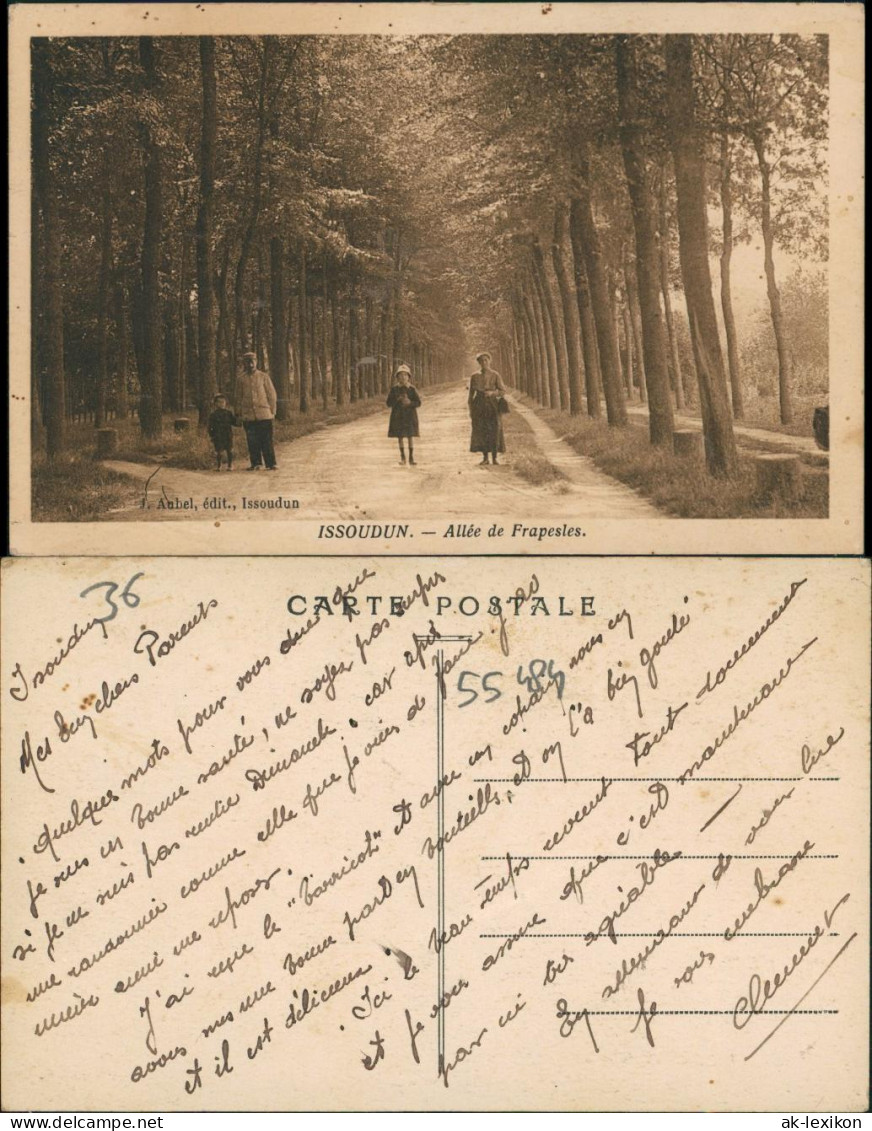 J. Aubel, édit., Issoudun
ISSOUDUN. — Allée de Frapesles.
36
CARTE POSTALE
55484
Issoudun
Mes biens chers Parents
Quelques mots pour vous dire que
je suis en bonne santé, ne soyez pas surpris
si je ne suis pas rentré Dimanche, car après
une randonnée comme celle que je viens de faire j'ai
mieux aimé me reposer.
J'ai reçu le "barricot" et avec un copain nous en
avons mis une bonne part en bouteilles, et on l'a bien goulé
et il est délicieux.
Ici le beau temps revient tout doucement
et je vous assure que c'est maintenant
par ici très agréable —
En attendant de vous lire
Je vous embrasse
ak-lexikon